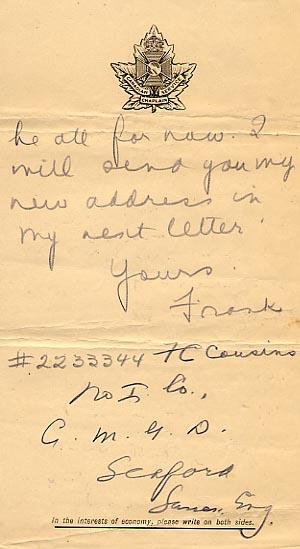 CANADIAN
SERVICE
CHAPLAIN
be all for now. I
will send you my
new address in
my next letter
Yours.
Frank
#2233344 FC Cousins
No I. Co.,
C. M. G. D.
Seaford
Sussex, Eng
In the interests of economy, please write on both sides.